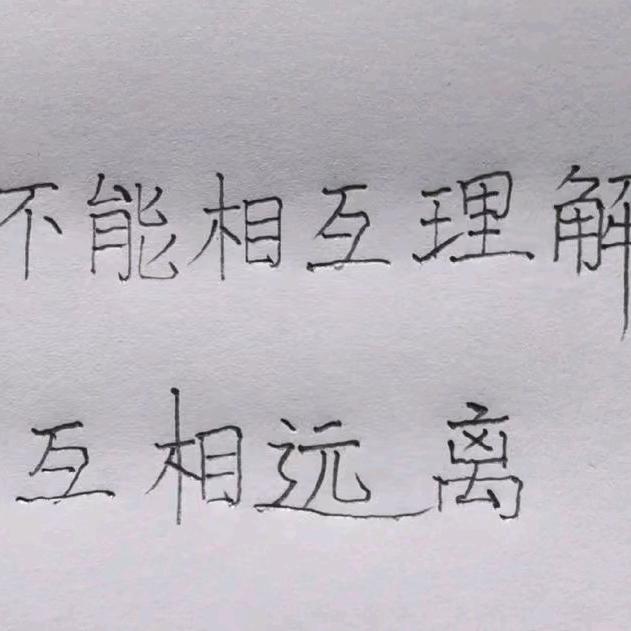 不能相互理解
互相远离